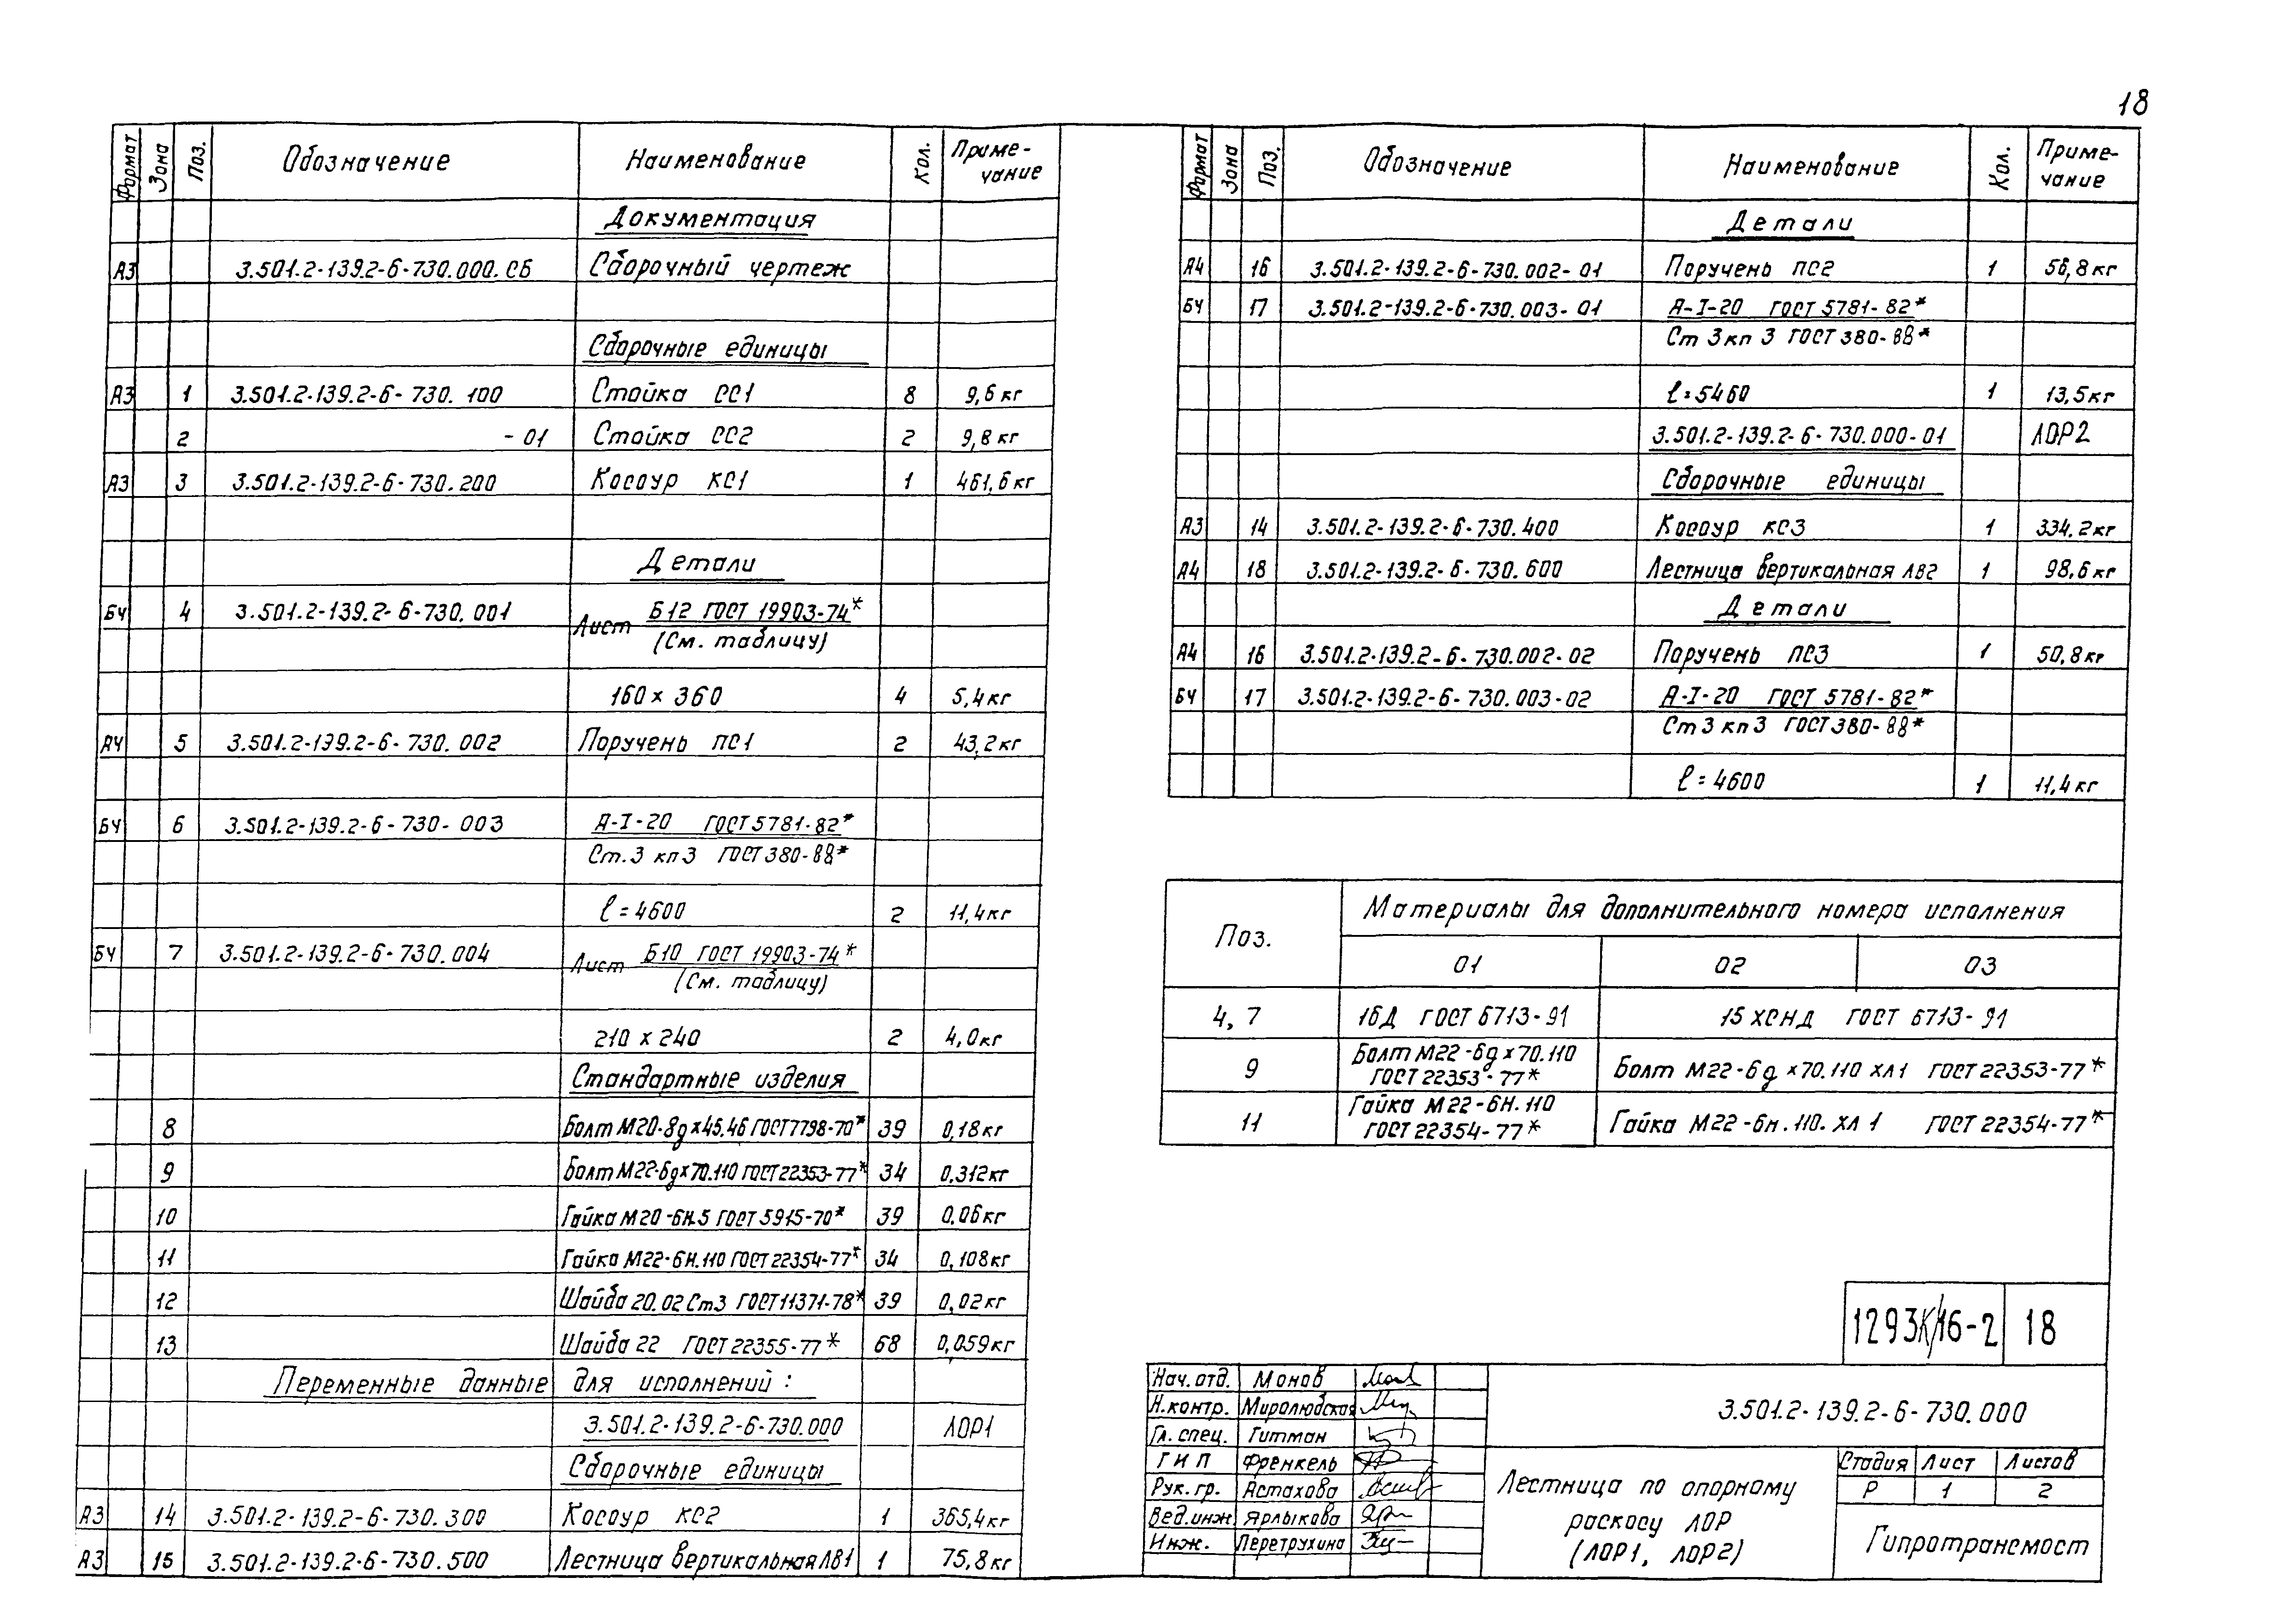 18
Формат Зона Поз. Обозначение Наименование Кол. Приме-чание
Документация
А3 3.501.2-139.2-6-730.000.СБ Сборочный чертеж
Сборочные единицы
А3 1 3.501.2-139.2-6-730.100 Стойка СС1 8 9,6 кг
2 -01 Стойка СС2 2 9,8 кг
А3 3 3.501.2-139.2-6-730.200 Косоур КС1 1 461,6 кг
Детали
БЧ 4 3.501.2-139.2-6-730.001 Лист Б12 ГОСТ 19903-74*
(См. таблицу)
160 х 360 4 5,4 кг
А4 5 3.501.2-139.2-6-730.002 Поручень ПС1 2 43,2 кг
БЧ 6 3.501.2-139.2-6-730-003 А-I-20 ГОСТ 5781-82*
Ст.3 кп 3 ГОСТ 380-88*
ℓ = 4600 2 11,4 кг
БЧ 7 3.501.2-139.2-6-730.004 Лист Б10 ГОСТ 19903-74*
(См. таблицу)
210 х 240 2 4,0 кг
Стандартные изделия
8 Болт М20-8gх45.46 ГОСТ 7798-70* 39 0,18 кг
9 Болт М22-6gх70.110 ГОСТ 22353-77* 34 0,312 кг
10 Гайка М20-6Н.5 ГОСТ 5915-70* 39 0,06 кг
11 Гайка М22-6Н.110 ГОСТ 22354-77* 34 0,108 кг
12 Шайба 20.02 Ст3 ГОСТ 11371-78* 39 0,02 кг
13 Шайба 22 ГОСТ 22355-77* 68 0,059 кг
Переменные данные для исполнений:
3.501.2-139.2-6-730.000 ЛОР1
Сборочные единицы
А3 14 3.501.2-139.2-6-730.300 Косоур КС2 1 365,4 кг
А3 15 3.501.2-139.2-6-730.500 Лестница вертикальная ЛВ1 1 75,8 кг
Формат Зона Поз. Обозначение Наименование Кол. Приме-чание
Детали
А4 16 3.501.2-139.2-6-730.002-01 Поручень ПС2 1 56,8 кг
БЧ 17 3.501.2-139.2-6-730.003-01 А-I-20 ГОСТ 5781-82*
Ст 3 кп 3 ГОСТ 380-88*
ℓ = 5460 1 13,5 кг
3.501.2-139.2-6-730.000-01 ЛОР2
Сборочные единицы
А3 14 3.501.2-139.2-6-730.400 Косоур КС3 1 334,2 кг
А4 18 3.501.2-139.2-6-730.600 Лестница вертикальная ЛВ2 1 98,6 кг
Детали
А4 16 3.501.2-139.2-6-730.002-02 Поручень ПС3 1 50,8 кг
БЧ 17 3.501.2-139.2-6-730.003-02 А-I-20 ГОСТ 5781-82*
Ст 3 кп 3 ГОСТ 380-88*
ℓ = 4600 1 11,4 кг
Поз. Материалы для дополнительного номера исполнения
01 02 03
4, 7 16Д ГОСТ 6713-91 15 ХСНД ГОСТ 6713-91
9 Болт М22-6gх70.110 ГОСТ 22353-77* Болт М22-6gх70.110 ХЛ1 ГОСТ 22353-77*
11 Гайка М22-6Н.110 ГОСТ 22354-77* Гайка М22-6н.110.ХЛ 1 ГОСТ 22354-77*
1293К/16-2 18
Нач. отд. Монов
Н.контр. Миролюбская
Гл. спец. Гитман
ГИП Френкель
Рук. гр. Астахова
Вед.инж. Ярлыкова
Инж. Перетрухина
3.501.2-139.2-6-730.000
Лестница по опорному
раскосу ЛОР
(ЛОР1, ЛОР2)
Стадия Лист Листов
Р 1 2
Гипротрансмост